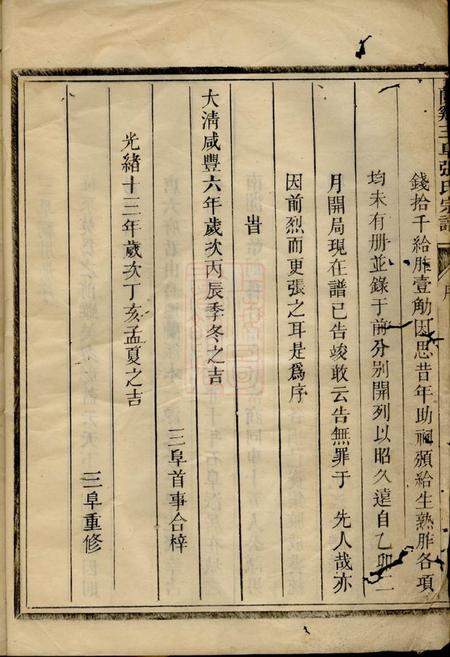 三阜張氏宗譜
錢拾千給胙壹觔因思昔年助祠頒給生熟胙各項
均未有册並錄于前分別開列以昭久遠自乙卯二
月開局現在譜已告竣敢云告無罪于 先人哉亦
因前烈而更張之耳是爲序
旹
大清咸豐六年歲次丙辰季冬之吉
三阜首事合梓
光緒十三年歲次丁亥孟夏之吉
三阜重修